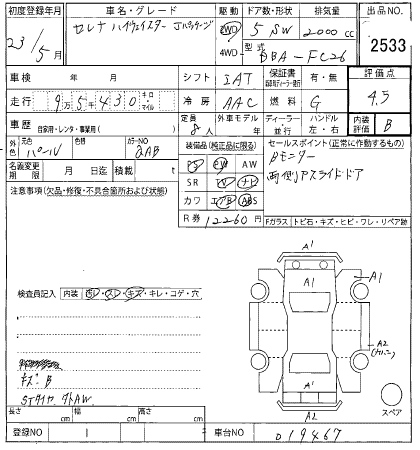 初度登録年月 車名・グレード 駆動 ドア数・形状 排気量 出品NO.
23/5月 セレナ ハイウェイスター Jパッケージ 2WD 4WD- 5 SW 2000 cc 2533
型式 DBA-FC26
車検 年 月 シフト IAT 保証書 有・無 評価点
走行 9万5千430 キロ・マイル 冷房 AAC 燃料 G 4.5
車歴 自家用・レンタ・事業用( ) 定員 8人 外車モデル 年 ディーラー 並行 ハンドル 左・右 内装評価 B
外色 元色 パール 色替 カラーNO 2AB 装備品(純正品に限る) セールスポイント(正常に作動するもの)
PS PW AW Bモニター
名義変更期限 月 日迄 積載 t SR TV ナビ 両側パワスライドドア
注意事項(欠品・修復・不具合箇所および状態) カワ エアB ABS
R券 12260円 Fガラス トビ石・キズ・ヒビ・ワレ・リペア跡
A1
A1
検査員記入 内装 汚レ・スレ・キズ・キレ・コゲ・穴
A2
キズ B
STスレ
スペア
A2
長さ cm 幅 cm 高さ cm
登録NO 1 車台NO 019467